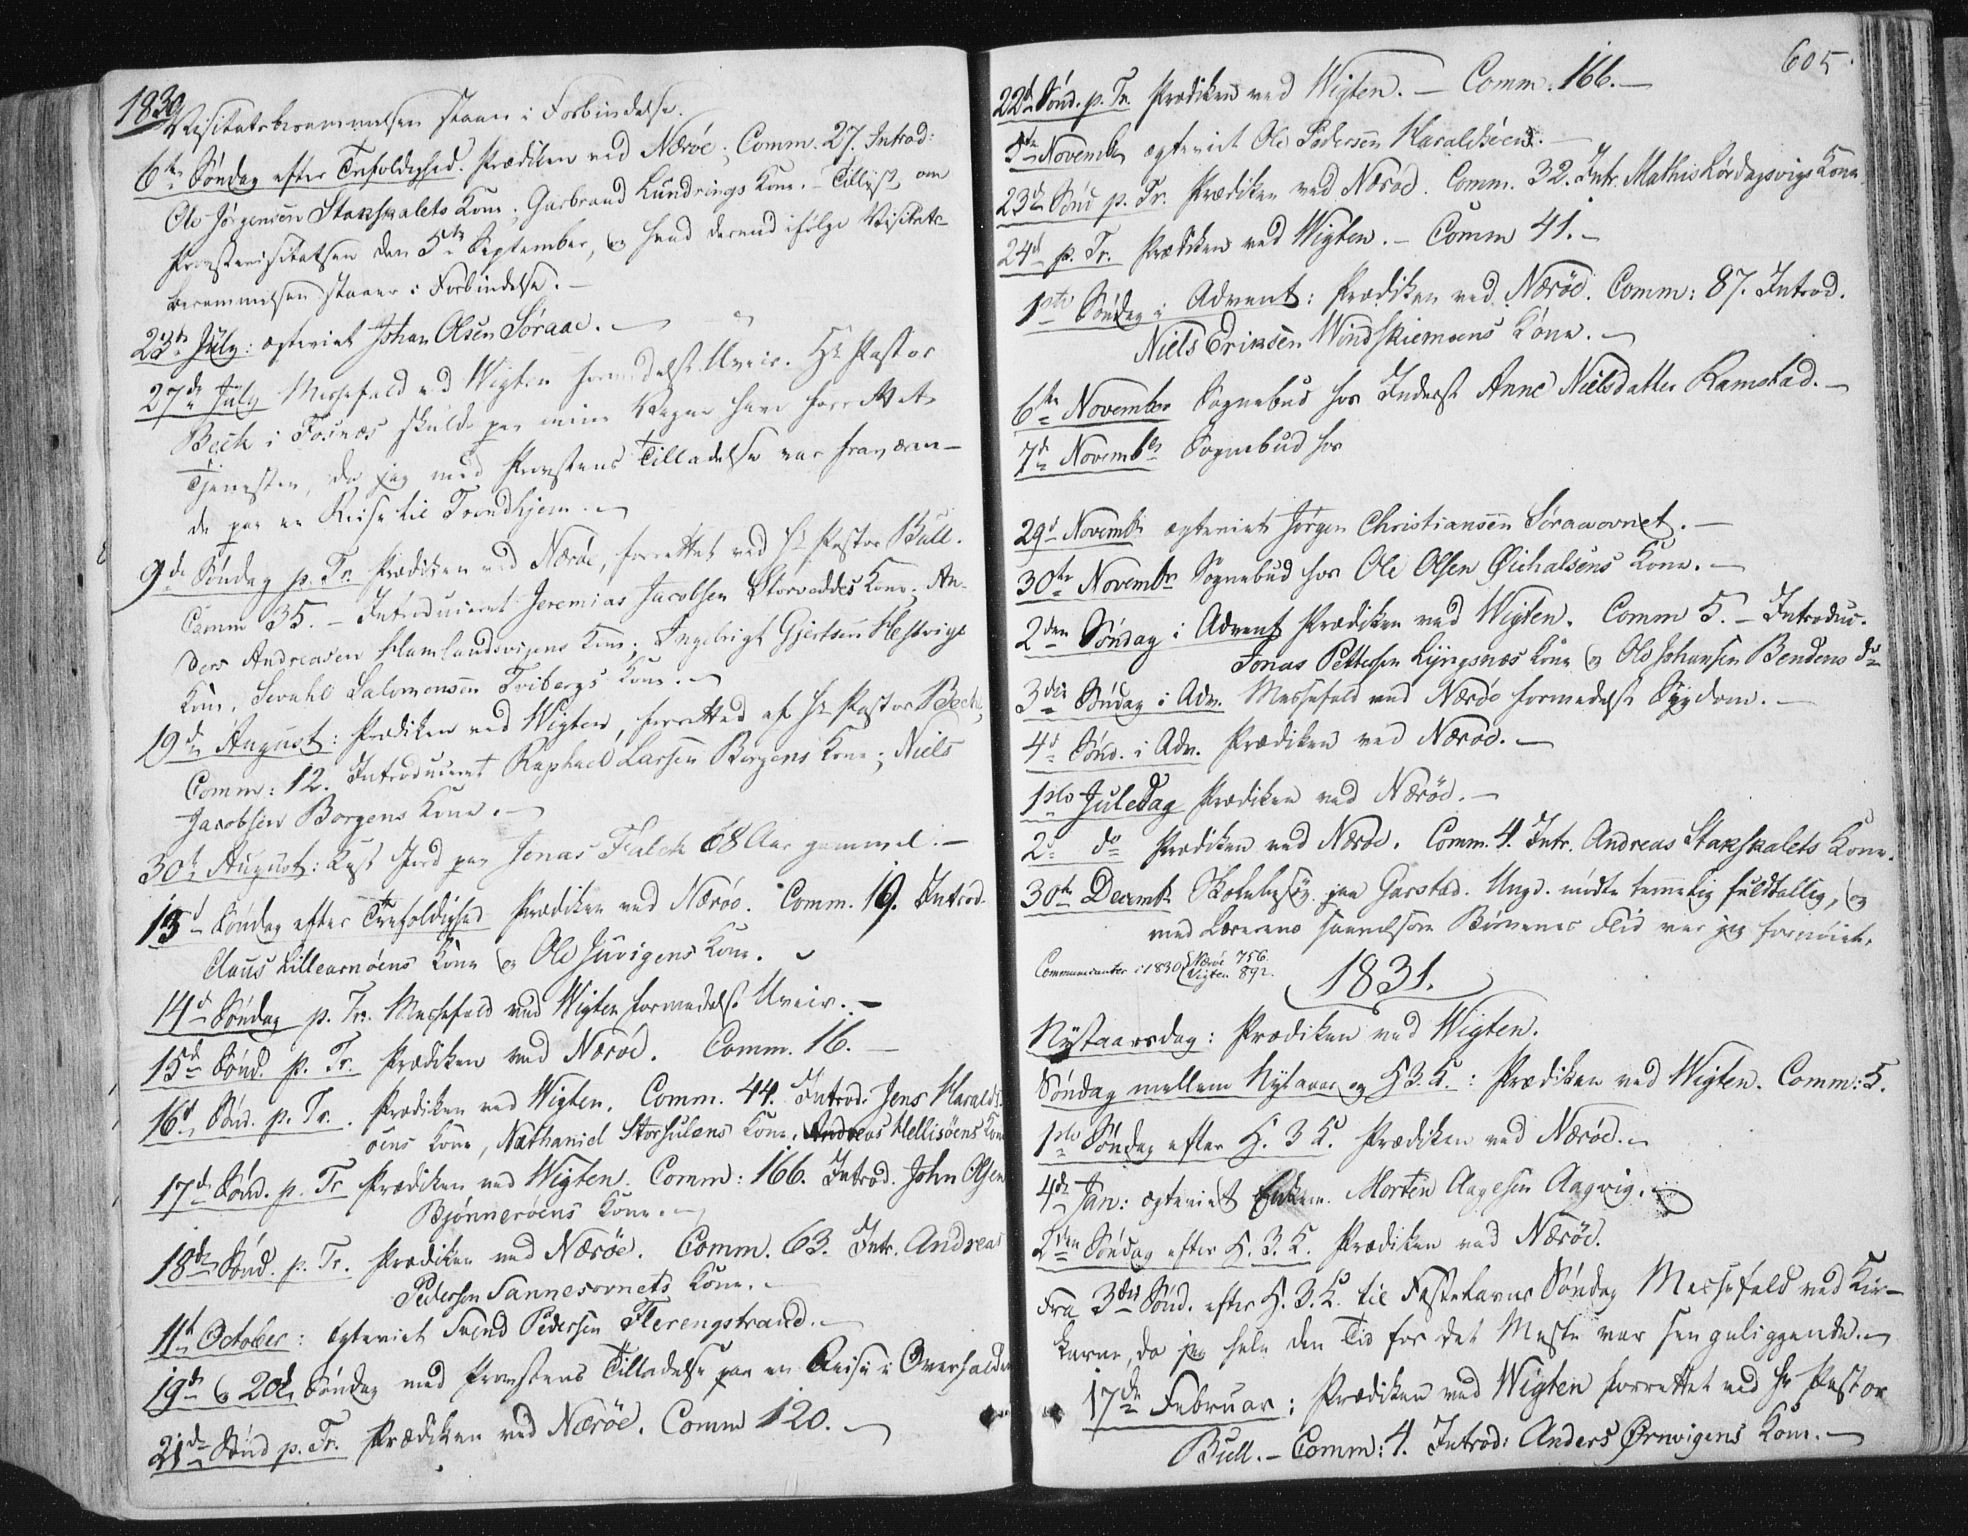 1830
Visitatsberammelsen staaer i Forbindelse.
6te Søndag efter Trefoldighed. Prædiken ved Nærøe; Comm. 27. Introd:
Ole Jørgensen Staxhalets Kone; Garbrand Lundrings Kone. – Tillyst om
Provstevisitatsen den 5te September, og hvad derved ifølge Visitats-
berammelsen staaer i Forbindelse. –
23de July: ægteviet Johan Olsen Søraae. –
27de July Messefald ved Wigten formedelst Uveir. Hr Pastor
Beck i Fosnæs skulde paa mine Vegne have forrettet
Tjenesten, da jeg med Provstens Tilladelse var fraværen-
de paa en Reise til Trondhjem. –
9de Søndag p. Tr. Prædiken ved Nærøe, forrettet ved Hr Pastor Bull.
Comm 35. – Introduceret Jeremias Jacobsen Storvoddes Kone; An-
ders Andreasen Hamlandsvigens Kone; Ingebrigt Gjertsen Hestvigs
Kone, Sivahl Salomonsen Tribergs Kone. –
19de August: Prædiken ved Wigten, forrettet af Hr Pastor Beck,
Comm: 12. Introduceret Raphael Larsen Borgens Kone; Niels
Jacobsen Borgens Kone. –
30te August: Kast Jord paa Jonas Falch 68 Aar gammel. –
13d Søndag efter Trefoldighed Prædiken ved Nærøe. Comm. 19. Introd.
Claus Lillearnøens Kone og Ole Juvigens Kone.
14d Søndag p. Tr. Messefald ved Wigten formedelst Uveir. –
15d Sønd. p. Tr. Prædiken ved Nærøe. Comm. 16. –
16d Sønd. p. Tr. Prædiken ved Wigten. Comm. 44. Introd. Jens Haralds-
øens Kone, Nathaniel Storhulens Kone. Andreas Hellisøens Kone
17de Sønd. p. Tr Prædiken ved Wigten. Comm: 166. Introd. John Olsen
Bjønnerøens Kone. –
18de Sønd. p. Tr. Prædiken ved Nærøe. Comm. 63. Intr. Andreas
Pedersen Sannesovnets Kone. –
11te October: ægteviet Svend Pedersen Flerengstrand. –
19de og 20de Søndag med Provstens Tilladelse paa en Reise i Overhalden
21de Sønd p. Tr. Prædiken ved Nærøe. Comm 120. –
605.
22d Sønd. p. Tr. Prædiken ved Wigten. – Comm. 166. –
5te Novembr ægteviet Ole Pedersen Haraldsøen. –
23d Sønd p. Tr. Prædiken ved Nærøe. Comm. 32. Intr. Mathis Lørdagsvigs Kone
24d p. Tr. Prædiken ved Wigten. – Comm 41. –
1ste Søndag i Advent: Prædiken ved Nærøe. Comm: 87. Introd.
Niels Eriksen Windskiemoens Kone. –
6te November Sognebud hos Inderst Anne Nielsdatter Ramstad. –
7de Novembr Sognebud hos
29d Novembr ægteviet Jørgen Christiansen Søraaeovnet. –
30te Novembr Sognebud hos Ole Olsen Øiehalsens Kone. –
2den Søndag i Advent Prædiken ved Wigten. Comm 5. – Introduc.
Jonas Pettersen Lyngsnæs Kone og Ole Johansen Bendens do
3die Søndag i Adv. Messefald ved Nærøe formedelst Sygdom. –
4d Sønd. i Adv. Prædiken ved Nærøe. –
1ste Juledag Prædiken ved Nærøe. –
2d do Prædiken ved Nærøe. Comm. 4. Intr. Andreas Staxhalets Kone.
30te Decembr Skolebesøg paa Garstad. Ungd. mødte temmelig fuldtallig, og
med Lærerens saavelsom Børnenes Flid var jeg fornøiet.
Communicanter i 1830 {Nærøe 756. Vigten 892.
1831.
Nytaarsdag: Prædiken ved Wigten.
Søndag mellem Nytaar og H. 3. K.: Prædiken ved Wigten. Comm: 5.
1ste Søndag efter H. 3 K. Prædiken ved Nærøe. –
4de Jan: ægteviet Enkem. Morten Aagesen Aagvig. –
2den Søndag efter H. 3. K. Prædiken ved Nærøe.
Fra 3die Sønd. efter H. 3. K. til Fastelavns Søndag Messefald ved Kir-
kerne, da jeg hele den Tid for det Meste var sengeliggende. –
17de Februar: Prædiken ved Wigten forrettet ved Hr Pastor
Bull. – Comm: 4. Introd: Anders Ørnvigens Kone. –